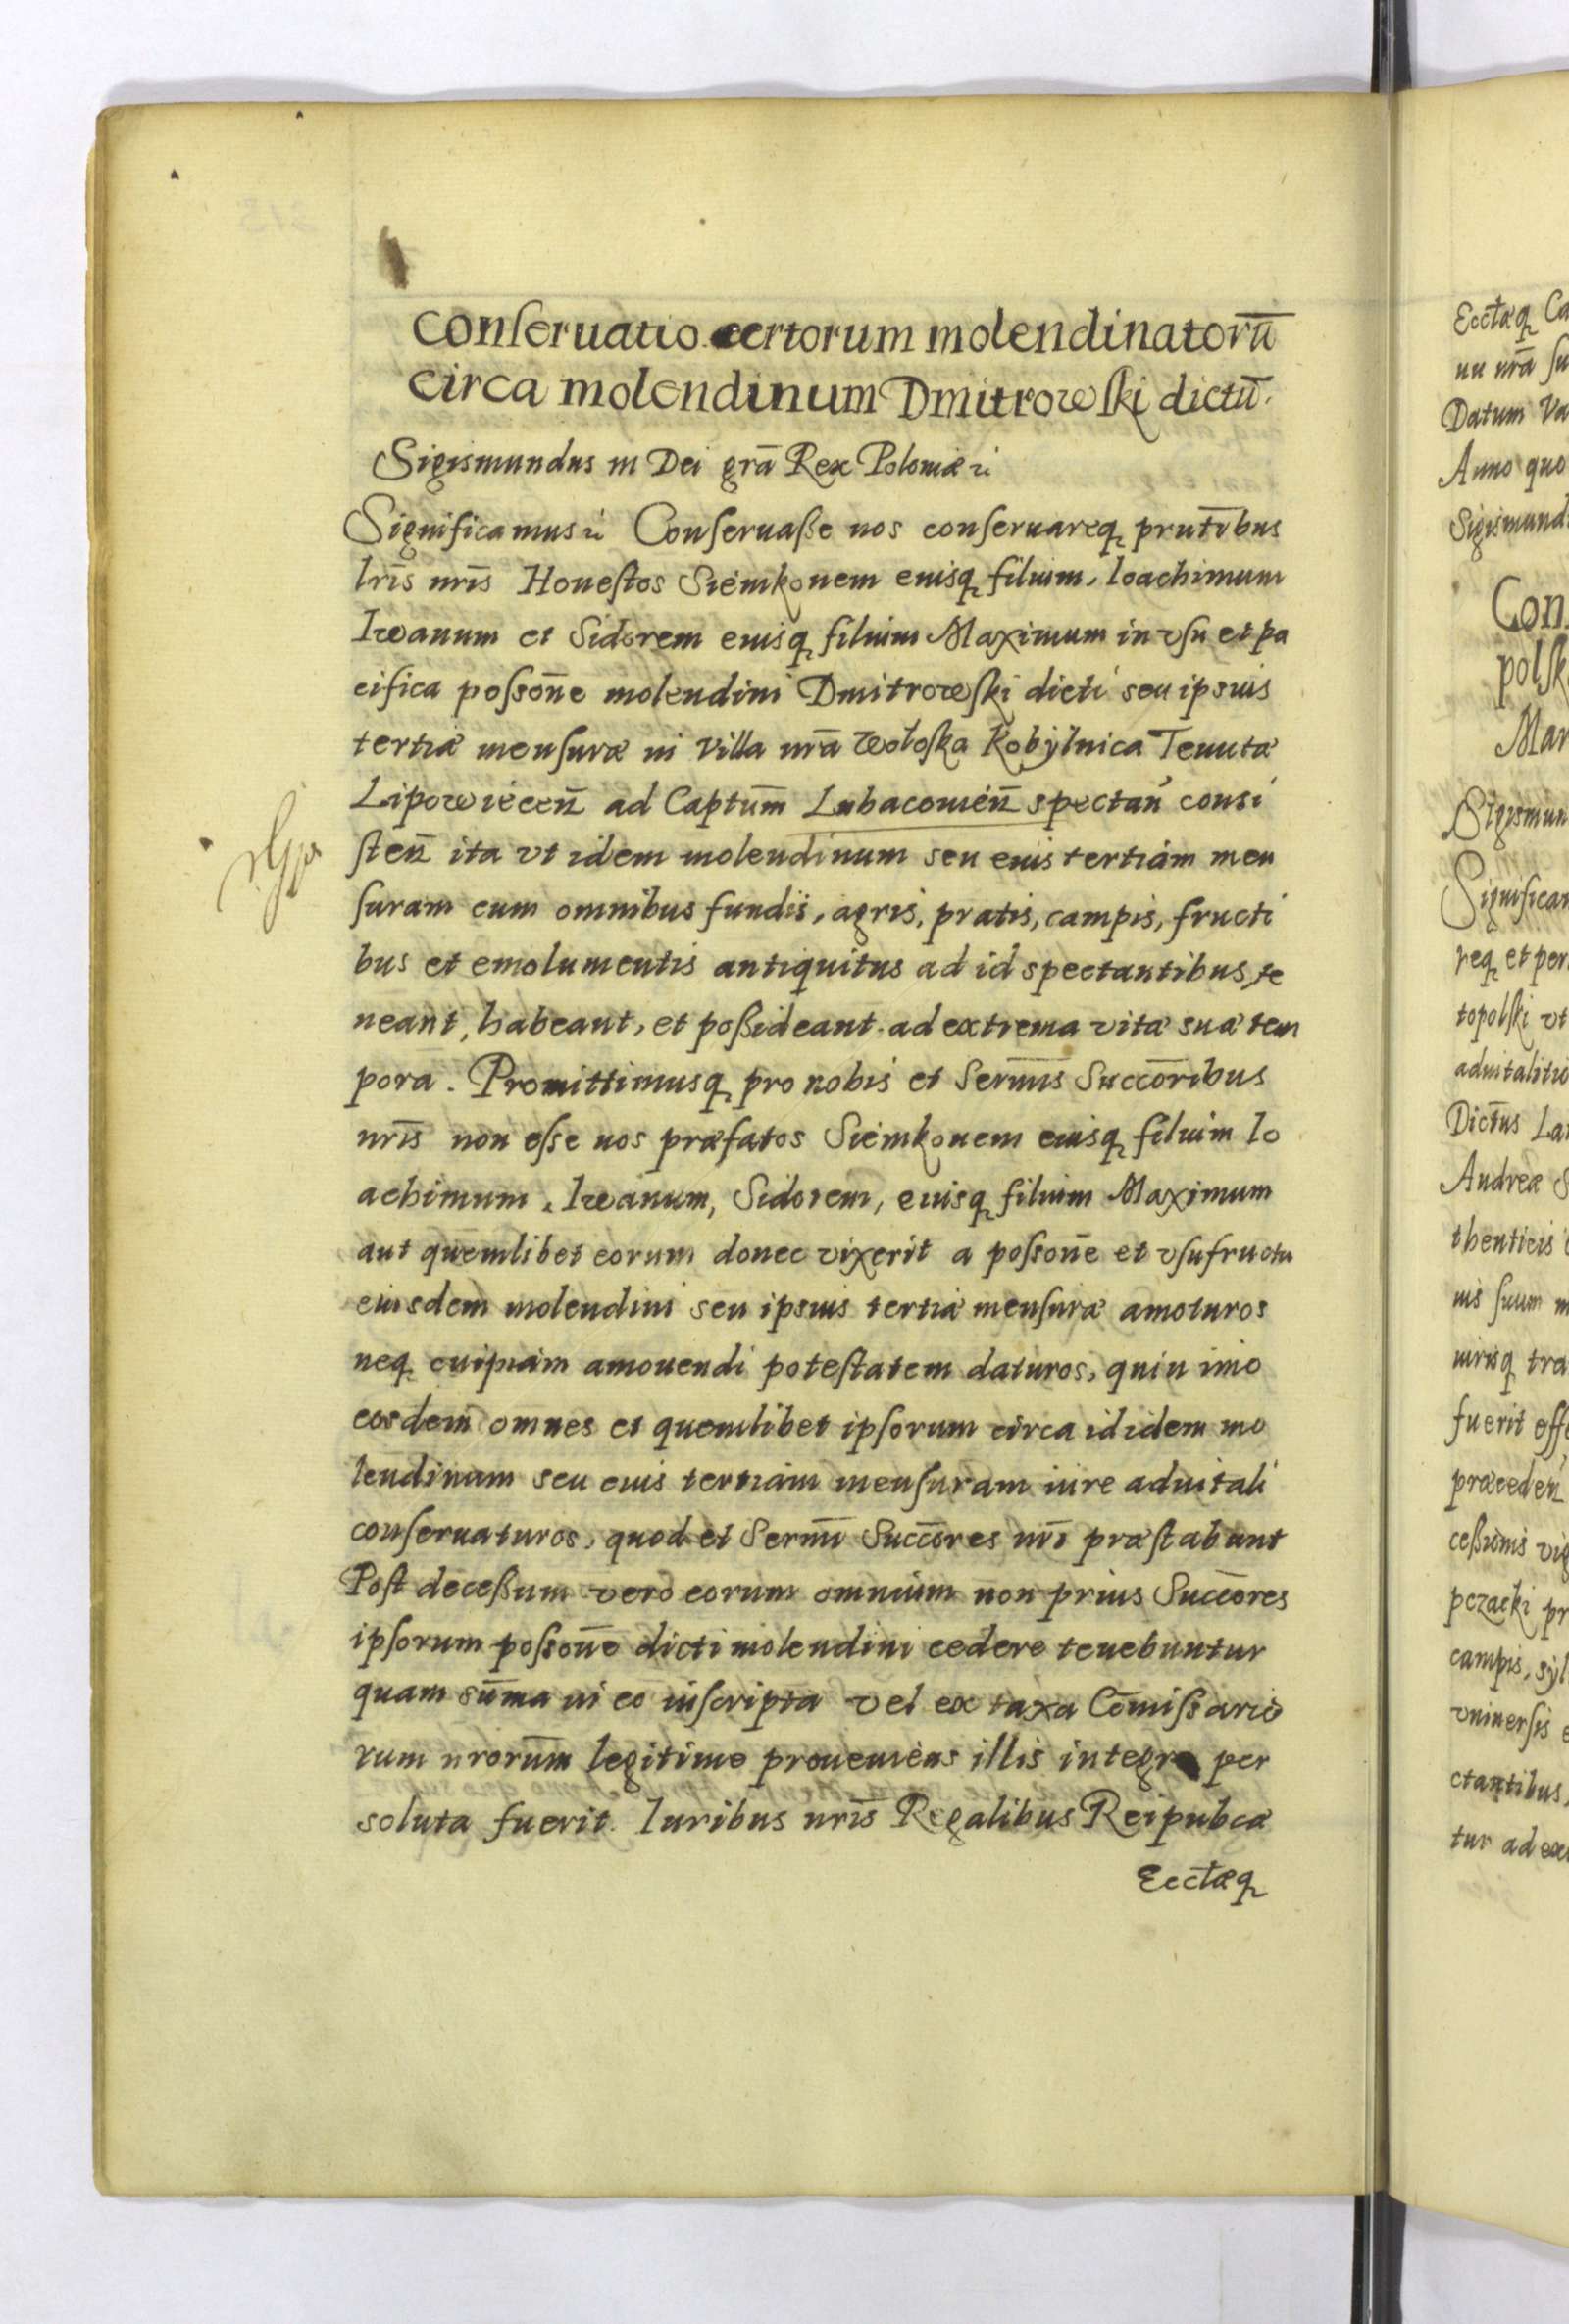 Conseruatio certorum molendinatorū
circa molendinum Dmitrowski dictū.
Sigismundus III Dei grā Rex Poloniæ
Significamus Conseruaße nos conseruareq prntibus
lris nris Honestos Siemkonem eiusq filium, Ioachimum
Iwanum et Sidorem eiusq filium Maximum in vsu et pa
cifica possone molendini Dmitrowski dicti seu ipsius
tertiæ mensuræ in Villa nrā Wołoska Kobylnica Tenutæ
Lipowiecen ad Captum Lubacouien spectan consi
sten ita vt idem molendinum seu eius tertiam men
suram cum omnibus fundis, agris, pratis, campis, fructi
bus et emolumentis antiquitus ad id spectantibus, te
neant, habeant, et poßideant ad extrema vitæ suæ tem
pora. Promittimusq pro nobis et Sermis Succoribus
nris non esse nos præfatos Siemkonem eiusq filium Io
achimum, Iwanum, Sidorem, eiusq filium Maximum
aut quemlibet eorum donec vixerit a possone et vsufructu
eiusdem molendini seu ipsius tertiæ mensuræ amoturos
neq cuipiam amouendi potestatem daturos, quin imo
eosdem omnes et quemlibet ipsorum circa id idem mo
lendinum seu eius tertiam mensuram iure aduitali
conseruaturos, quod et Sermi Succores nri præstabunt
Post deceßum vero eorum omnium non prius Succores
ipsorum possone dicti molendini cedere tenebuntur
quam sūma in eo inscripta vel ex taxa Cōmissario
rum nrorum legitime proueniens illis integre per
soluta fuerit. Iuribus nris Regalibus Reipubcæ
Ecctæq
Ecctæq Ca
nu nrā su
Datum Va
Anno quo
Sigismund
Con
polsk
Mar
Sigismun
Significam
req et per
topolski vt
aduitalitio
Dictus La
Andreæ S
thenticis
nis suum
iurisq tra
fuerit effe
præceden
ceßionis vig
pczacki pr
campis, syl
vniuersis e
ctantibus,
tur ad ex